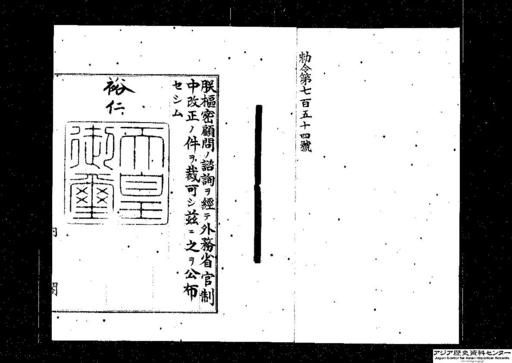 勅令第七百五十四號
朕樞密顧問ノ諮詢ヲ經テ外務省官制
中改正ノ件ヲ裁可シ茲ニ之ヲ公布
セシム
裕仁
天皇
御璽
内
閣
アジア歴史資料センター
Japan Center for Asian Historical Records